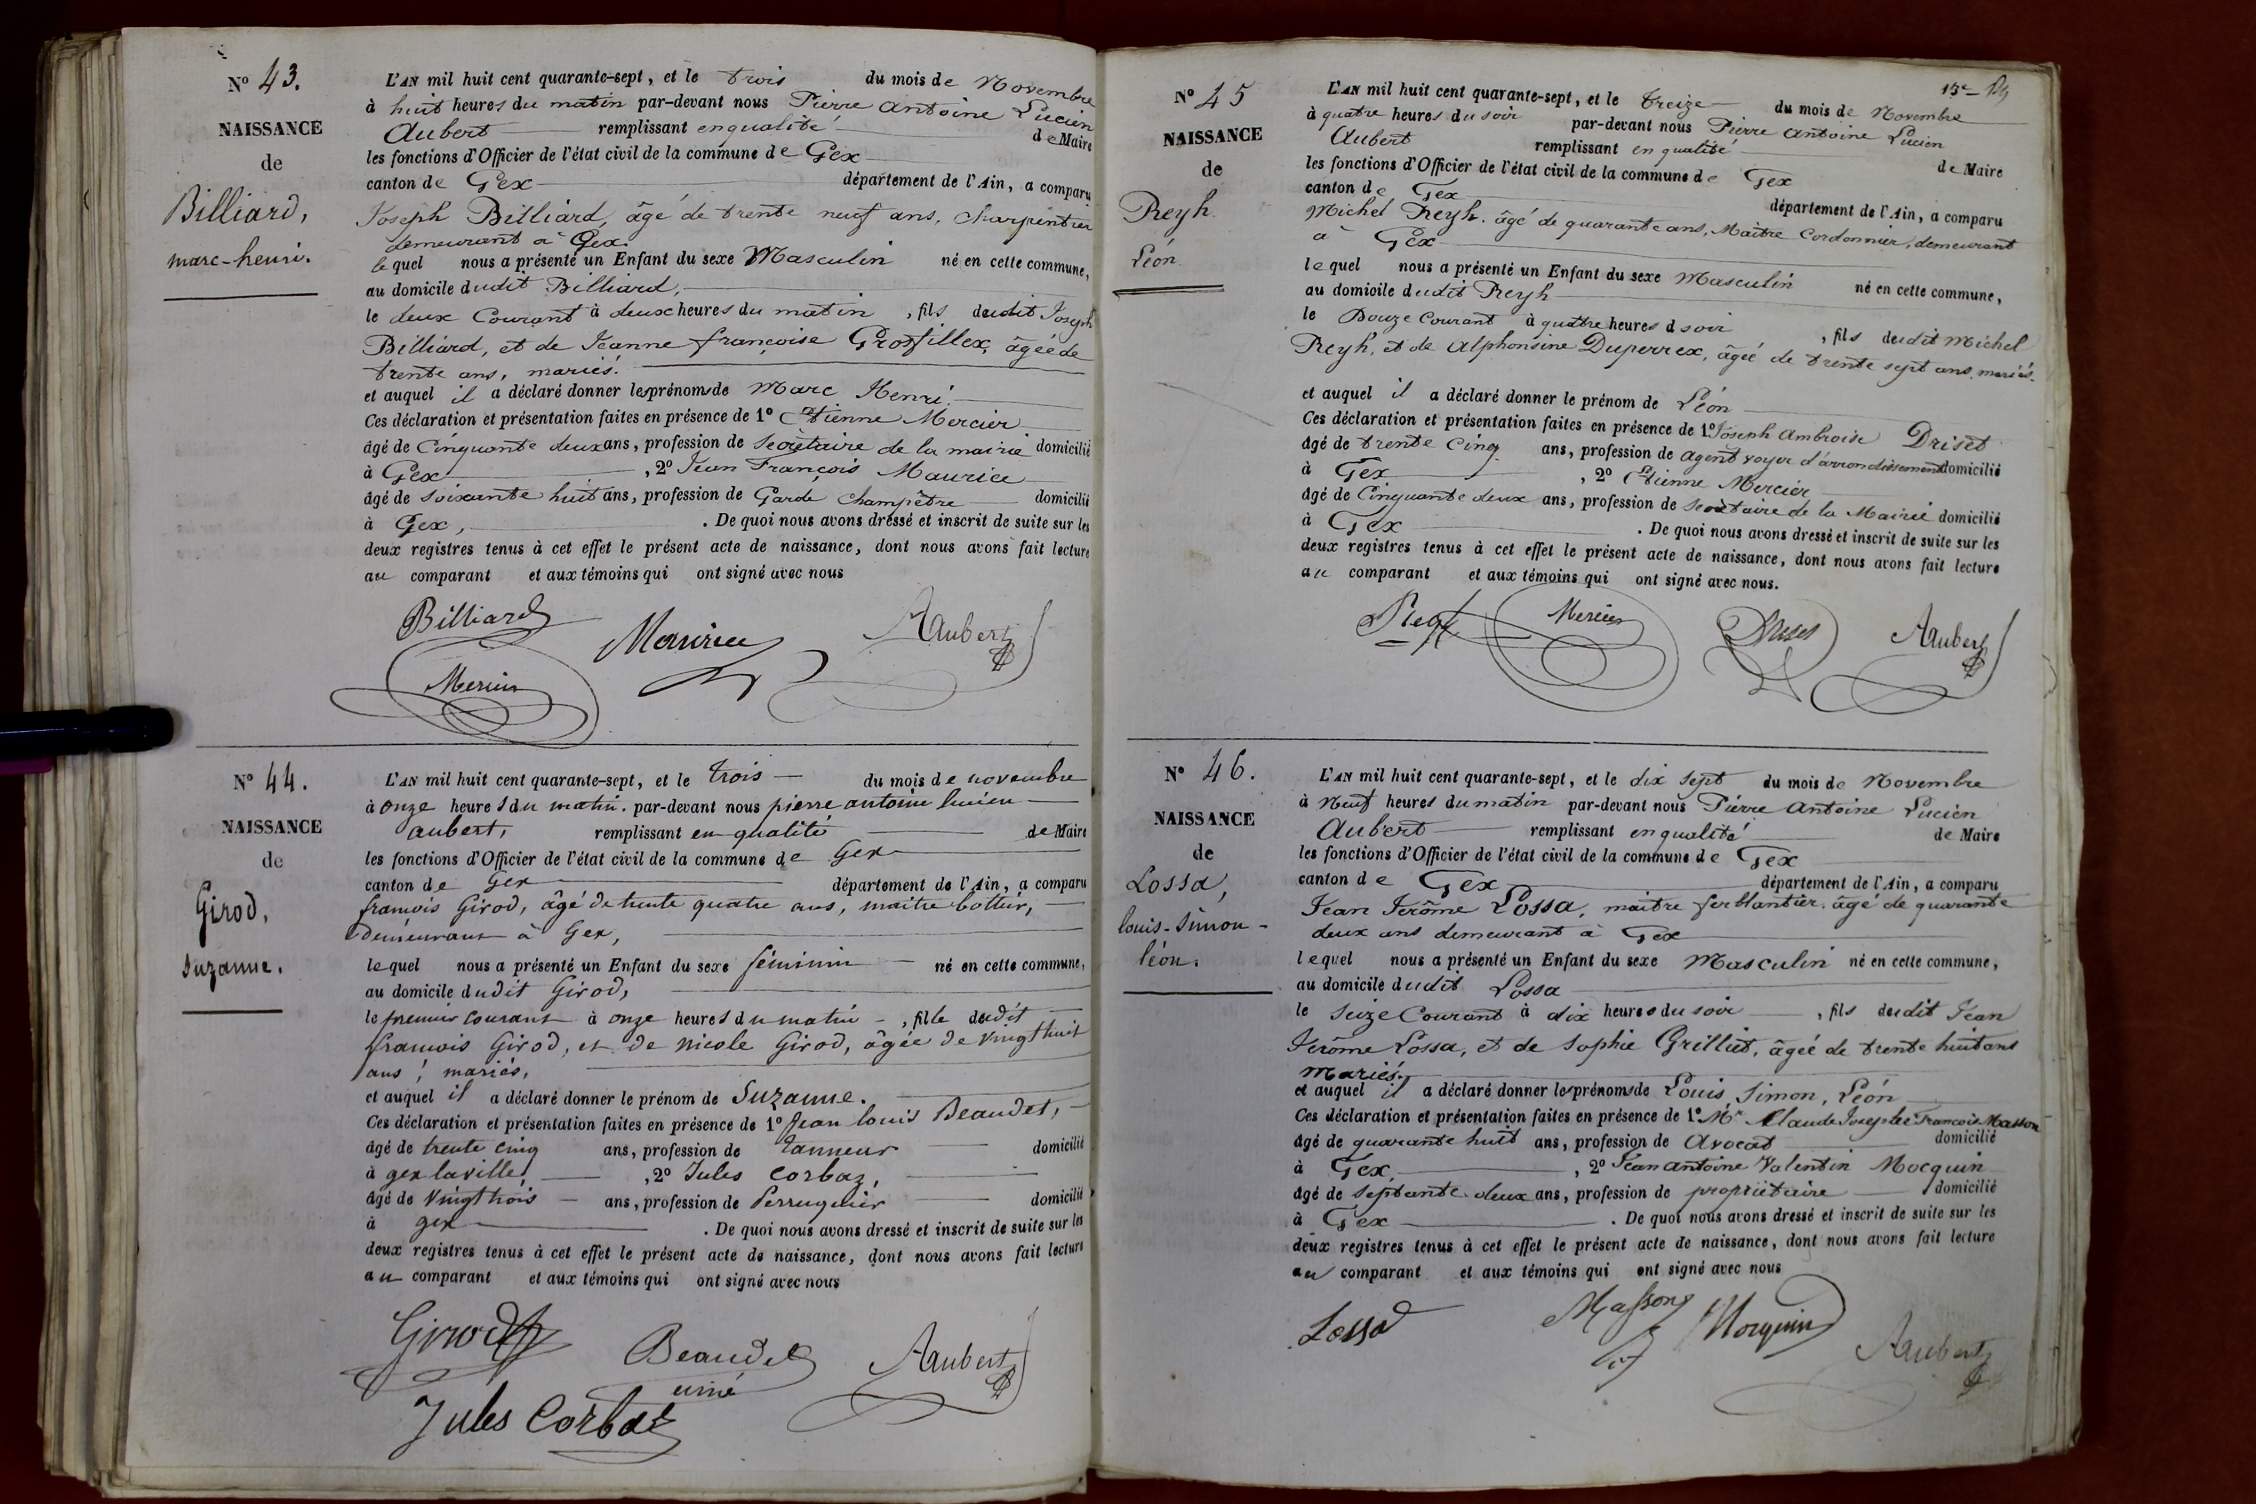 N° 43.
NAISSANCE
de
Billiard,
marc-henri.
L'AN mil huit cent quarante-sept, et le trois du mois de Novembre
à huit heures du matin par-devant nous Pierre Antoine Lucien
Aubert remplissant en qualité de Maire
les fonctions d'Officier de l'état civil de la commune de Gex
canton de Gex département de l'Ain, a comparu
Joseph Billiard, âgé de trente neuf ans, charpentier
demeurant à Gex.
lequel nous a présenté un Enfant du sexe Masculin né en cette commune,
au domicile dudit Billiard,
le deux Courant à deux heures du matin, fils dudit Joseph
Billiard, et de Jeanne françoise Grosfillex, âgée de
trente ans, mariés.
et auquel il a déclaré donner les prénoms de Marc Henri.
Ces déclaration et présentation faites en présence de 1° Etienne Mercier
âgé de Cinquante deux ans, profession de Secrétaire de la mairie domicilié
à Gex, 2° Jean François Maurice
âgé de soixante huit ans, profession de Garde champêtre domicilié
à Gex, . De quoi nous avons dressé et inscrit de suite sur les
deux registres tenus à cet effet le présent acte de naissance, dont nous avons fait lecture
au comparant et aux témoins qui ont signé avec nous
Billiard
Maurice
Aubert
Mercier
N° 44.
NAISSANCE
de
Girod,
Suzanne.
L'AN mil huit cent quarante-sept, et le trois du mois de novembre
à onze heures du matin. par-devant nous pierre antoine lucien
aubert, remplissant en qualité de Maire
les fonctions d'Officier de l'état civil de la commune de Gex
canton de Gex département de l'Ain, a comparu
françois Girod, âgé de trente quatre ans, maitre bottier,
demeurant à Gex,
lequel nous a présenté un Enfant du sexe féminin né en cette commune,
au domicile dudit Girod,
le premier courant à onze heures du matin, fille dudit
françois Girod, et de Nicole Girod, âgée de vingt huit
ans, mariés,
et auquel il a déclaré donner le prénom de Suzanne.
Ces déclaration et présentation faites en présence de 1° Jean louis Beaudet,
âgé de trente cinq ans, profession de tanneur domicilié
à gex laville, 2° Jules Corbaz,
âgé de vingt trois ans, profession de Perruquier domicilié
à gex . De quoi nous avons dressé et inscrit de suite sur les
deux registres tenus à cet effet le présent acte de naissance, dont nous avons fait lecture
au comparant et aux témoins qui ont signé avec nous
Girod
Beaudet
Aubert
Jules Corbaz
N° 45
NAISSANCE
de
Preyh
Léon
L'AN mil huit cent quarante-sept, et le treize du mois de Novembre
à quatre heures du soir par-devant nous Pierre Antoine Lucien
Aubert remplissant en qualité de Maire
les fonctions d'Officier de l'état civil de la commune de Gex
canton de Gex département de l'Ain, a comparu
Michel Preyh. âgé de quarante ans, Maître Cordonnier, demeurant
à Gex
lequel nous a présenté un Enfant du sexe Masculin né en cette commune,
au domicile dudit Preyh
le Douze Courant à quatre heures d soir, fils dudit Michel
Preyh, et de Alphonsine Duperrex, âgée de trente sept ans, mariés.
et auquel il a déclaré donner le prénom de Léon
Ces déclaration et présentation faites en présence de 1° Joseph Ambroise Driset
âgé de trente Cinq ans, profession de agent voyer d'arrondissement domicilié
à Gex, 2° Etienne Mercier
âgé de Cinquante deux ans, profession de Secrétaire de la Mairie domicilié
à Gex . De quoi nous avons dressé et inscrit de suite sur les
deux registres tenus à cet effet le présent acte de naissance, dont nous avons fait lecture
au comparant et aux témoins qui ont signé avec nous.
Mercier
Driset
Aubert
N° 46.
NAISSANCE
de
Lossa,
louis-Simon-
léon.
L'AN mil huit cent quarante-sept, et le dix sept du mois de Novembre
à Neuf heures du matin par-devant nous Pierre Antoine Lucien
Aubert remplissant en qualité de Maire
les fonctions d'Officier de l'état civil de la commune de Gex
canton de Gex département de l'Ain, a comparu
Jean Jerôme Lossa, maître ferblantier. âgé de quarante
deux ans demeurant à Gex
lequel nous a présenté un Enfant du sexe Masculin né en cette commune,
au domicile dudit Lossa
le Seize Courant à dix heures du soir, fils dudit Jean
Jerôme Lossa, et de Sophie Grilliet, âgée de trente huit ans
Mariés.
et auquel il a déclaré donner les prénoms de Louis, Simon, Léon
Ces déclaration et présentation faites en présence de 1° Mr Claude Joseph François Masson
âgé de quarante huit ans, profession de Avocat domicilié
à Gex, 2° Jean Antoine Valentin Mocquin
âgé de septante deux ans, profession de propriétaire domicilié
à Gex . De quoi nous avons dressé et inscrit de suite sur les
deux registres tenus à cet effet le présent acte de naissance, dont nous avons fait lecture
au comparant et aux témoins qui ont signé avec nous
Lossa
Masson
Mocquin
Aubert